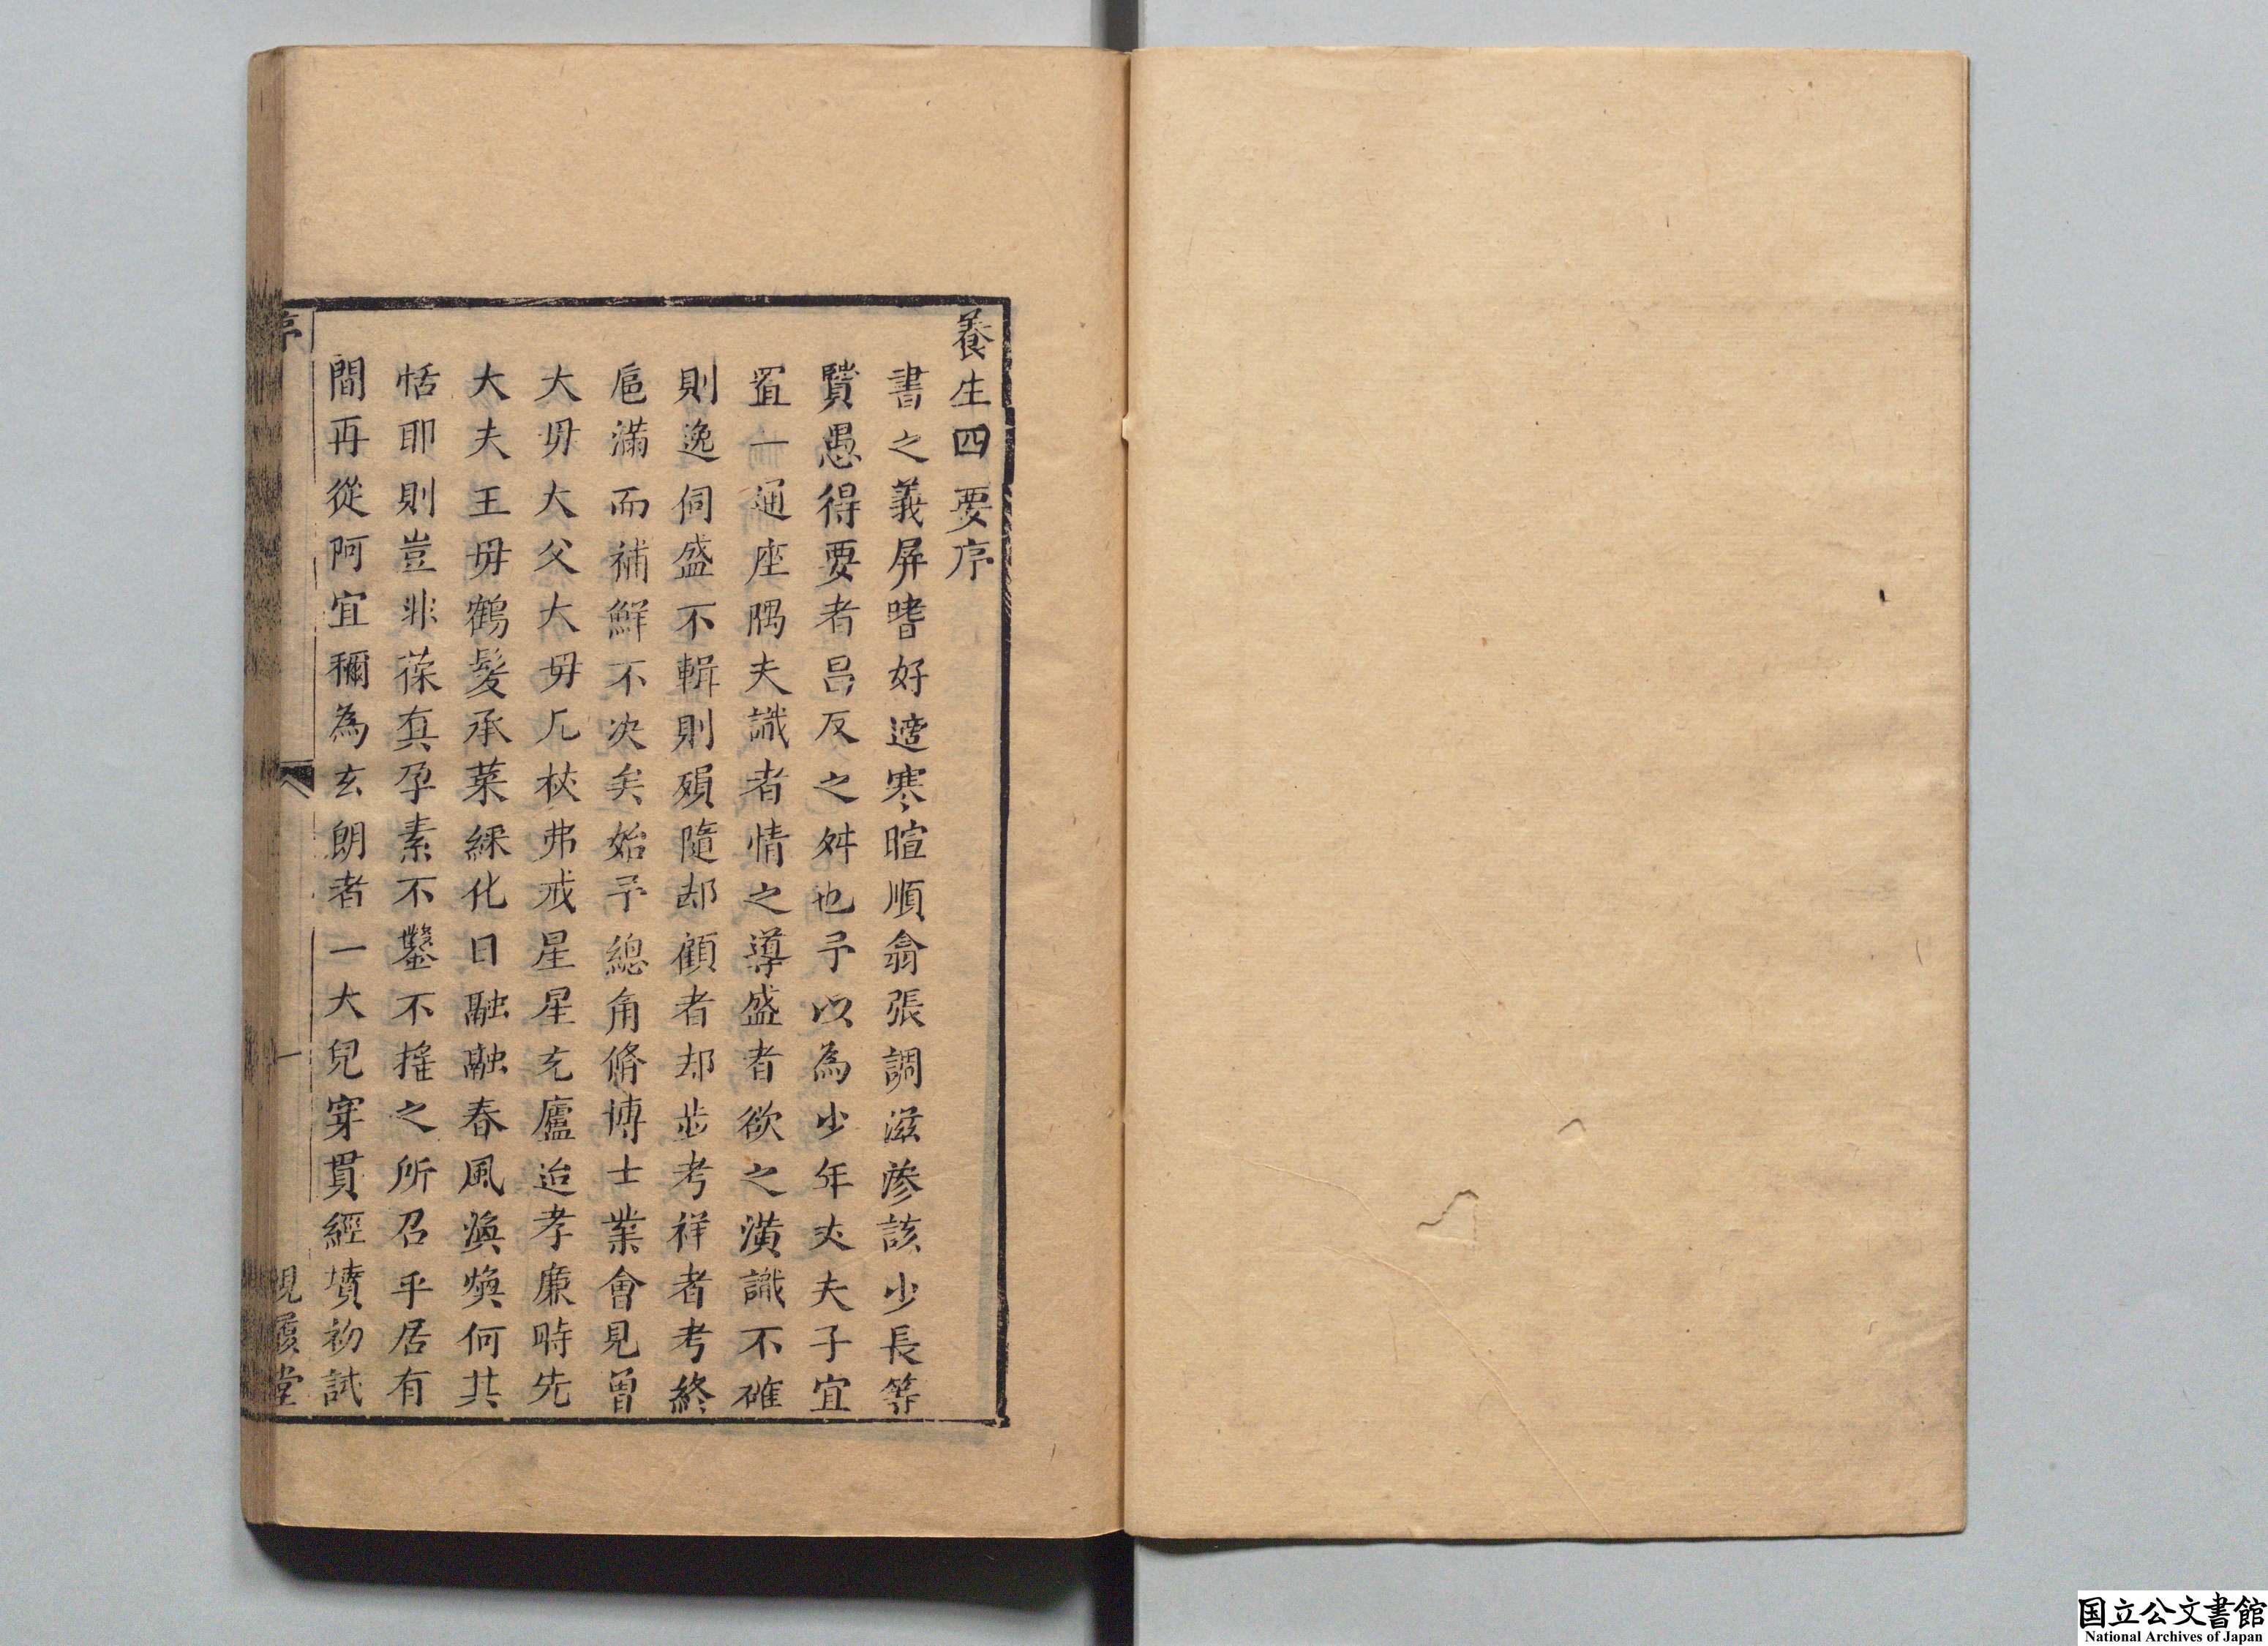 養生四要序
書之義屏嗜好適寒暄順翕張調滋滲該少長等
賢愚得要者昌反之舛也予以為少年丈夫子宜
置一通座隅夫識者情之導盛者欲之潢識不確
則逸伺盛不輯則殞隨却顧者却步考祥者考終
巵滿而補鮮不决矣始予總角脩博士業會見曾
大毋大父大毋几杖弗戒星星充廬迨孝廉時先
大夫王毋鶴髮承菜綵化日融融春風煥煥何其
恬耶則豈非葆真孕素不鑿不搖之所召乎居有
間再從阿宜稱為玄朗者一大兒穿貫經墳初試
序
一
視履堂
国立公文書館
National Archives of Japan